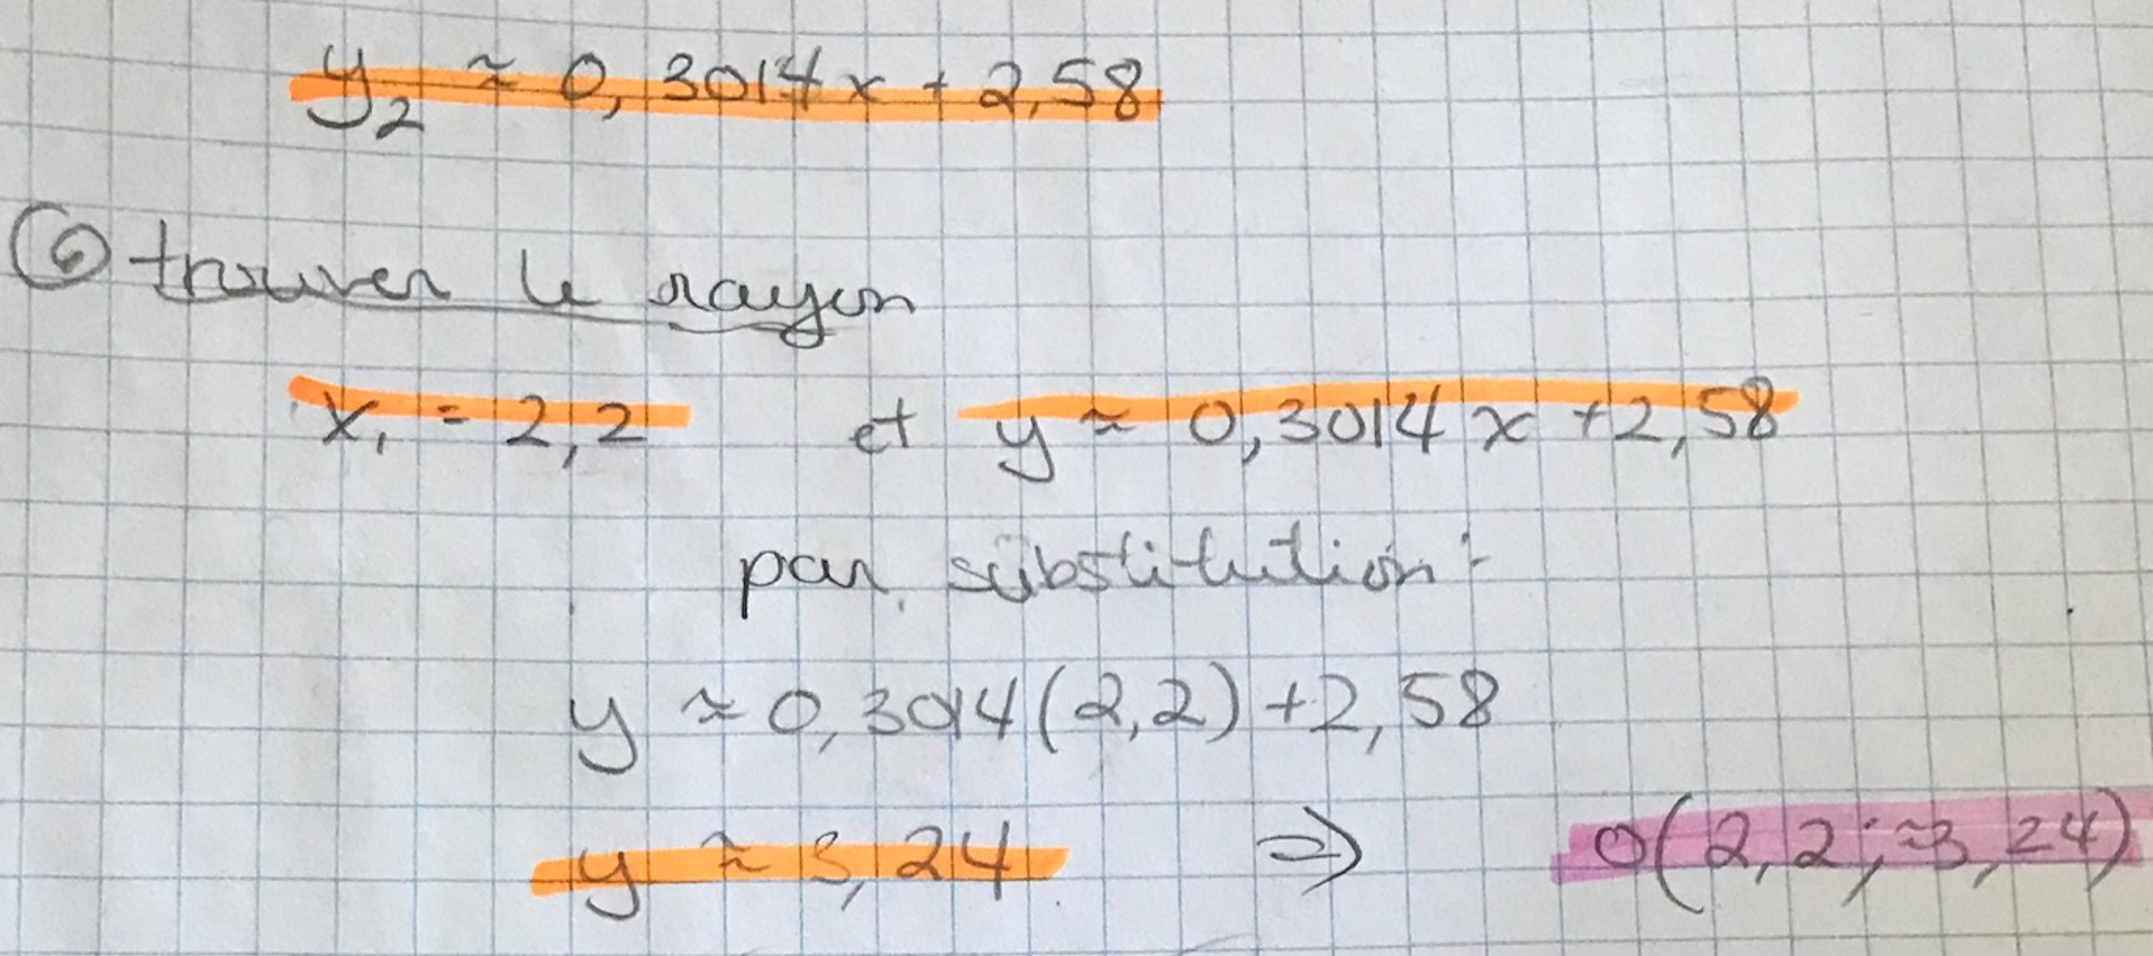 y₂ ≈ 0,3014x + 2,58
⑥ trouver le rayon
x₁ = 2,2 et y ≈ 0,3014x + 2,58
par substitution :
y ≈ 0,3014(2,2) + 2,58
y ≈ 3,24 ⇒ O(2,2 ; ≈3,24)